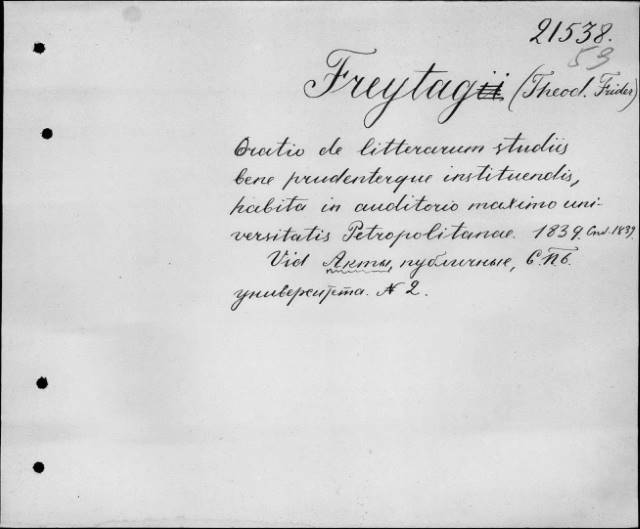 21538.
53
Freytag (Theod. Frider)
Oratio de litterarum studiis
bene prudenterque instituendis,
habita in auditorio maximo uni-
versitatis Petropolitanae. 1839. Спб. 1839.
Vid Акты, публичные, С.Пб.
университета. № 2.